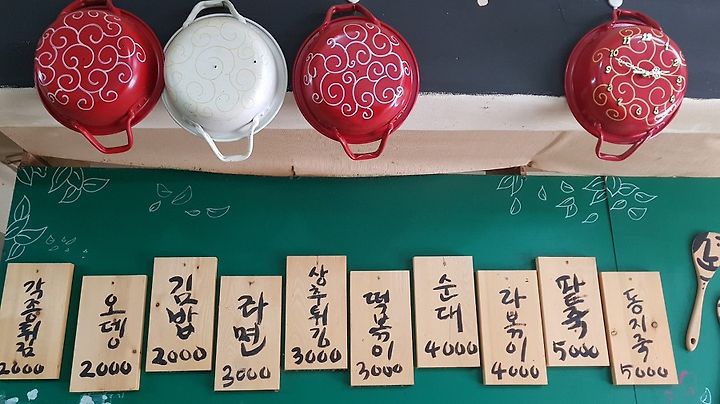 각종튀김
2000
오뎅
2000
김밥
2000
라면
3000
상추튀김
3000
떡볶이
3000
순대
4000
라볶이
4000
팥죽
5000
동지죽
5000